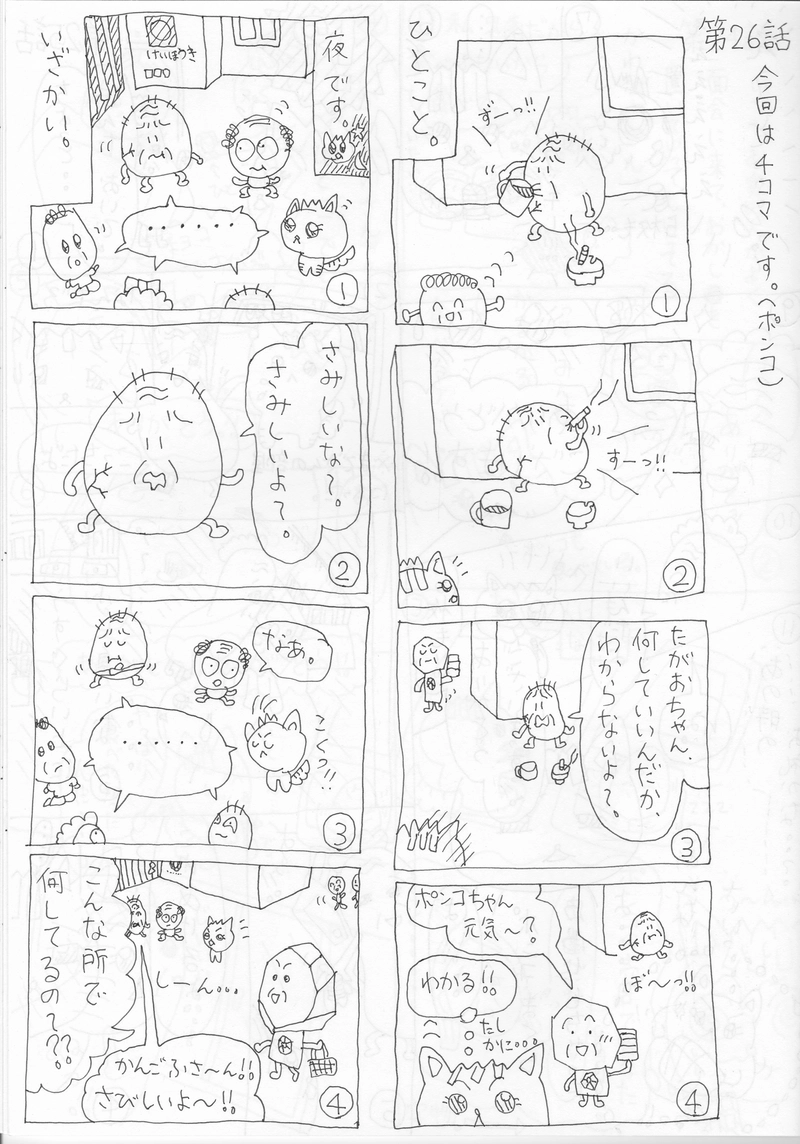 第26話
今回は4コマです。(ポンコ)
ひとこと。
ずーっ!!
①
すーっ!!
②
たがおちゃん、
何していいんだか、
わからないよ〜。
③
ポンコちゃん
元気〜?
ぼ〜っ!!
わかる!!
たし
かに...
④
夜です。
けいほうき
いざかい。
......
①
さみしいな〜。
さみしいよ〜。
②
なあ。
......
こくっ!!
③
しーん...
こんな所で
何してるの〜??
かんごふさ〜ん!!
さびしいよ〜!!
④